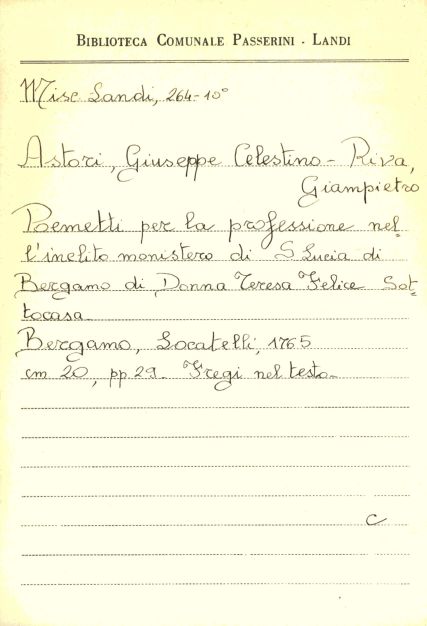 BIBLIOTECA COMUNALE PASSERINI - LANDI
Misc Landi, 264-10°
Astori, Giuseppe Celestino - Riva,
Giampietro
Poemetti per la professione nel=
l'inclito monistero di S. Lucia di
Bergamo di Donna Teresa Felice Sot=
tocasa
Bergamo, Locatelli, 1765
cm 20, pp. 29. Fregi nel testo
C